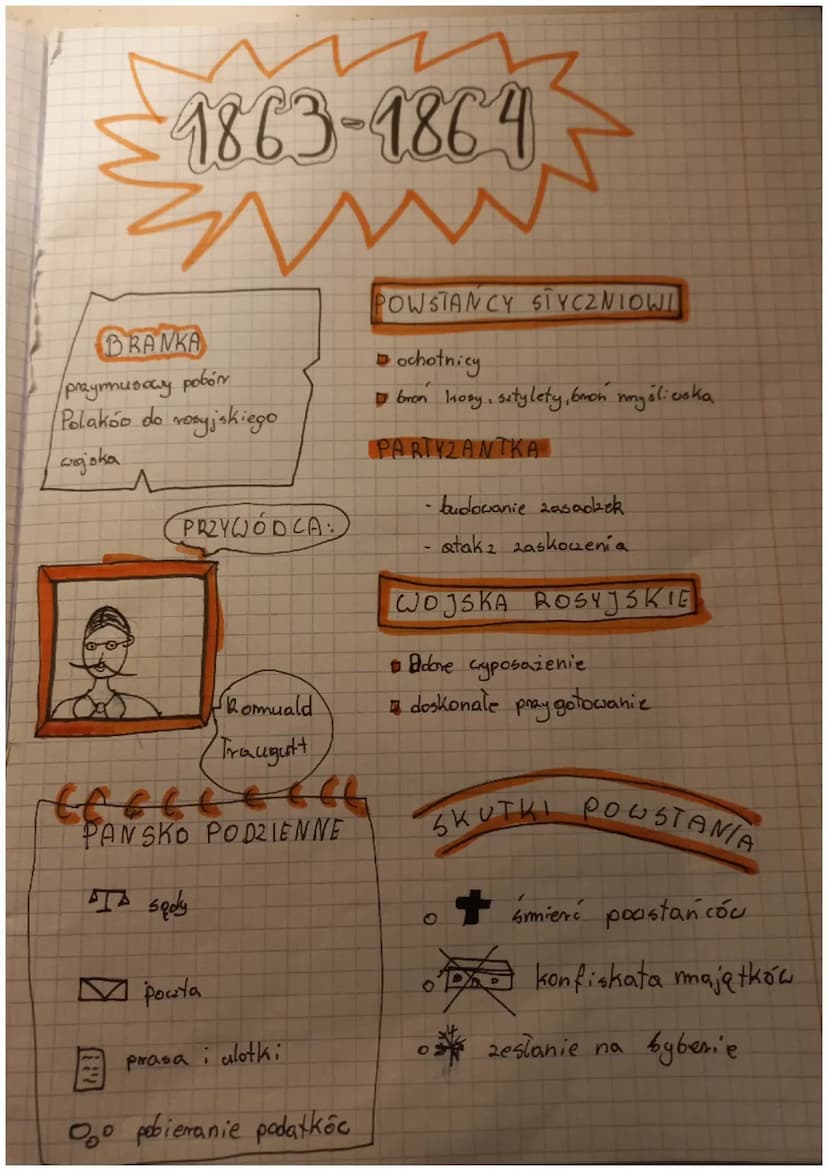 1863-1864
BRANKA
przymusowy pobór
Polaków do rosyjskiego
wojska
POWSTAŃCY STYCZNIOWI
ochotnicy
broń kosy, sztylety, broń myśliwska
PARTYZANTKA
- budowanie zasadzek
- atak z zaskoczenia
PRZYWÓDCA:
Romuald
Traugutt
WOJSKA ROSYJSKIE
dobre wyposażenie
doskonałe przygotowanie
PAŃSKO PODZIENNE
sądy
poczta
prasa i ulotki
pobieranie podatków
SKUTKI POWSTANIA
śmierć powstańców
konfiskata majątków
zesłanie na Syberię